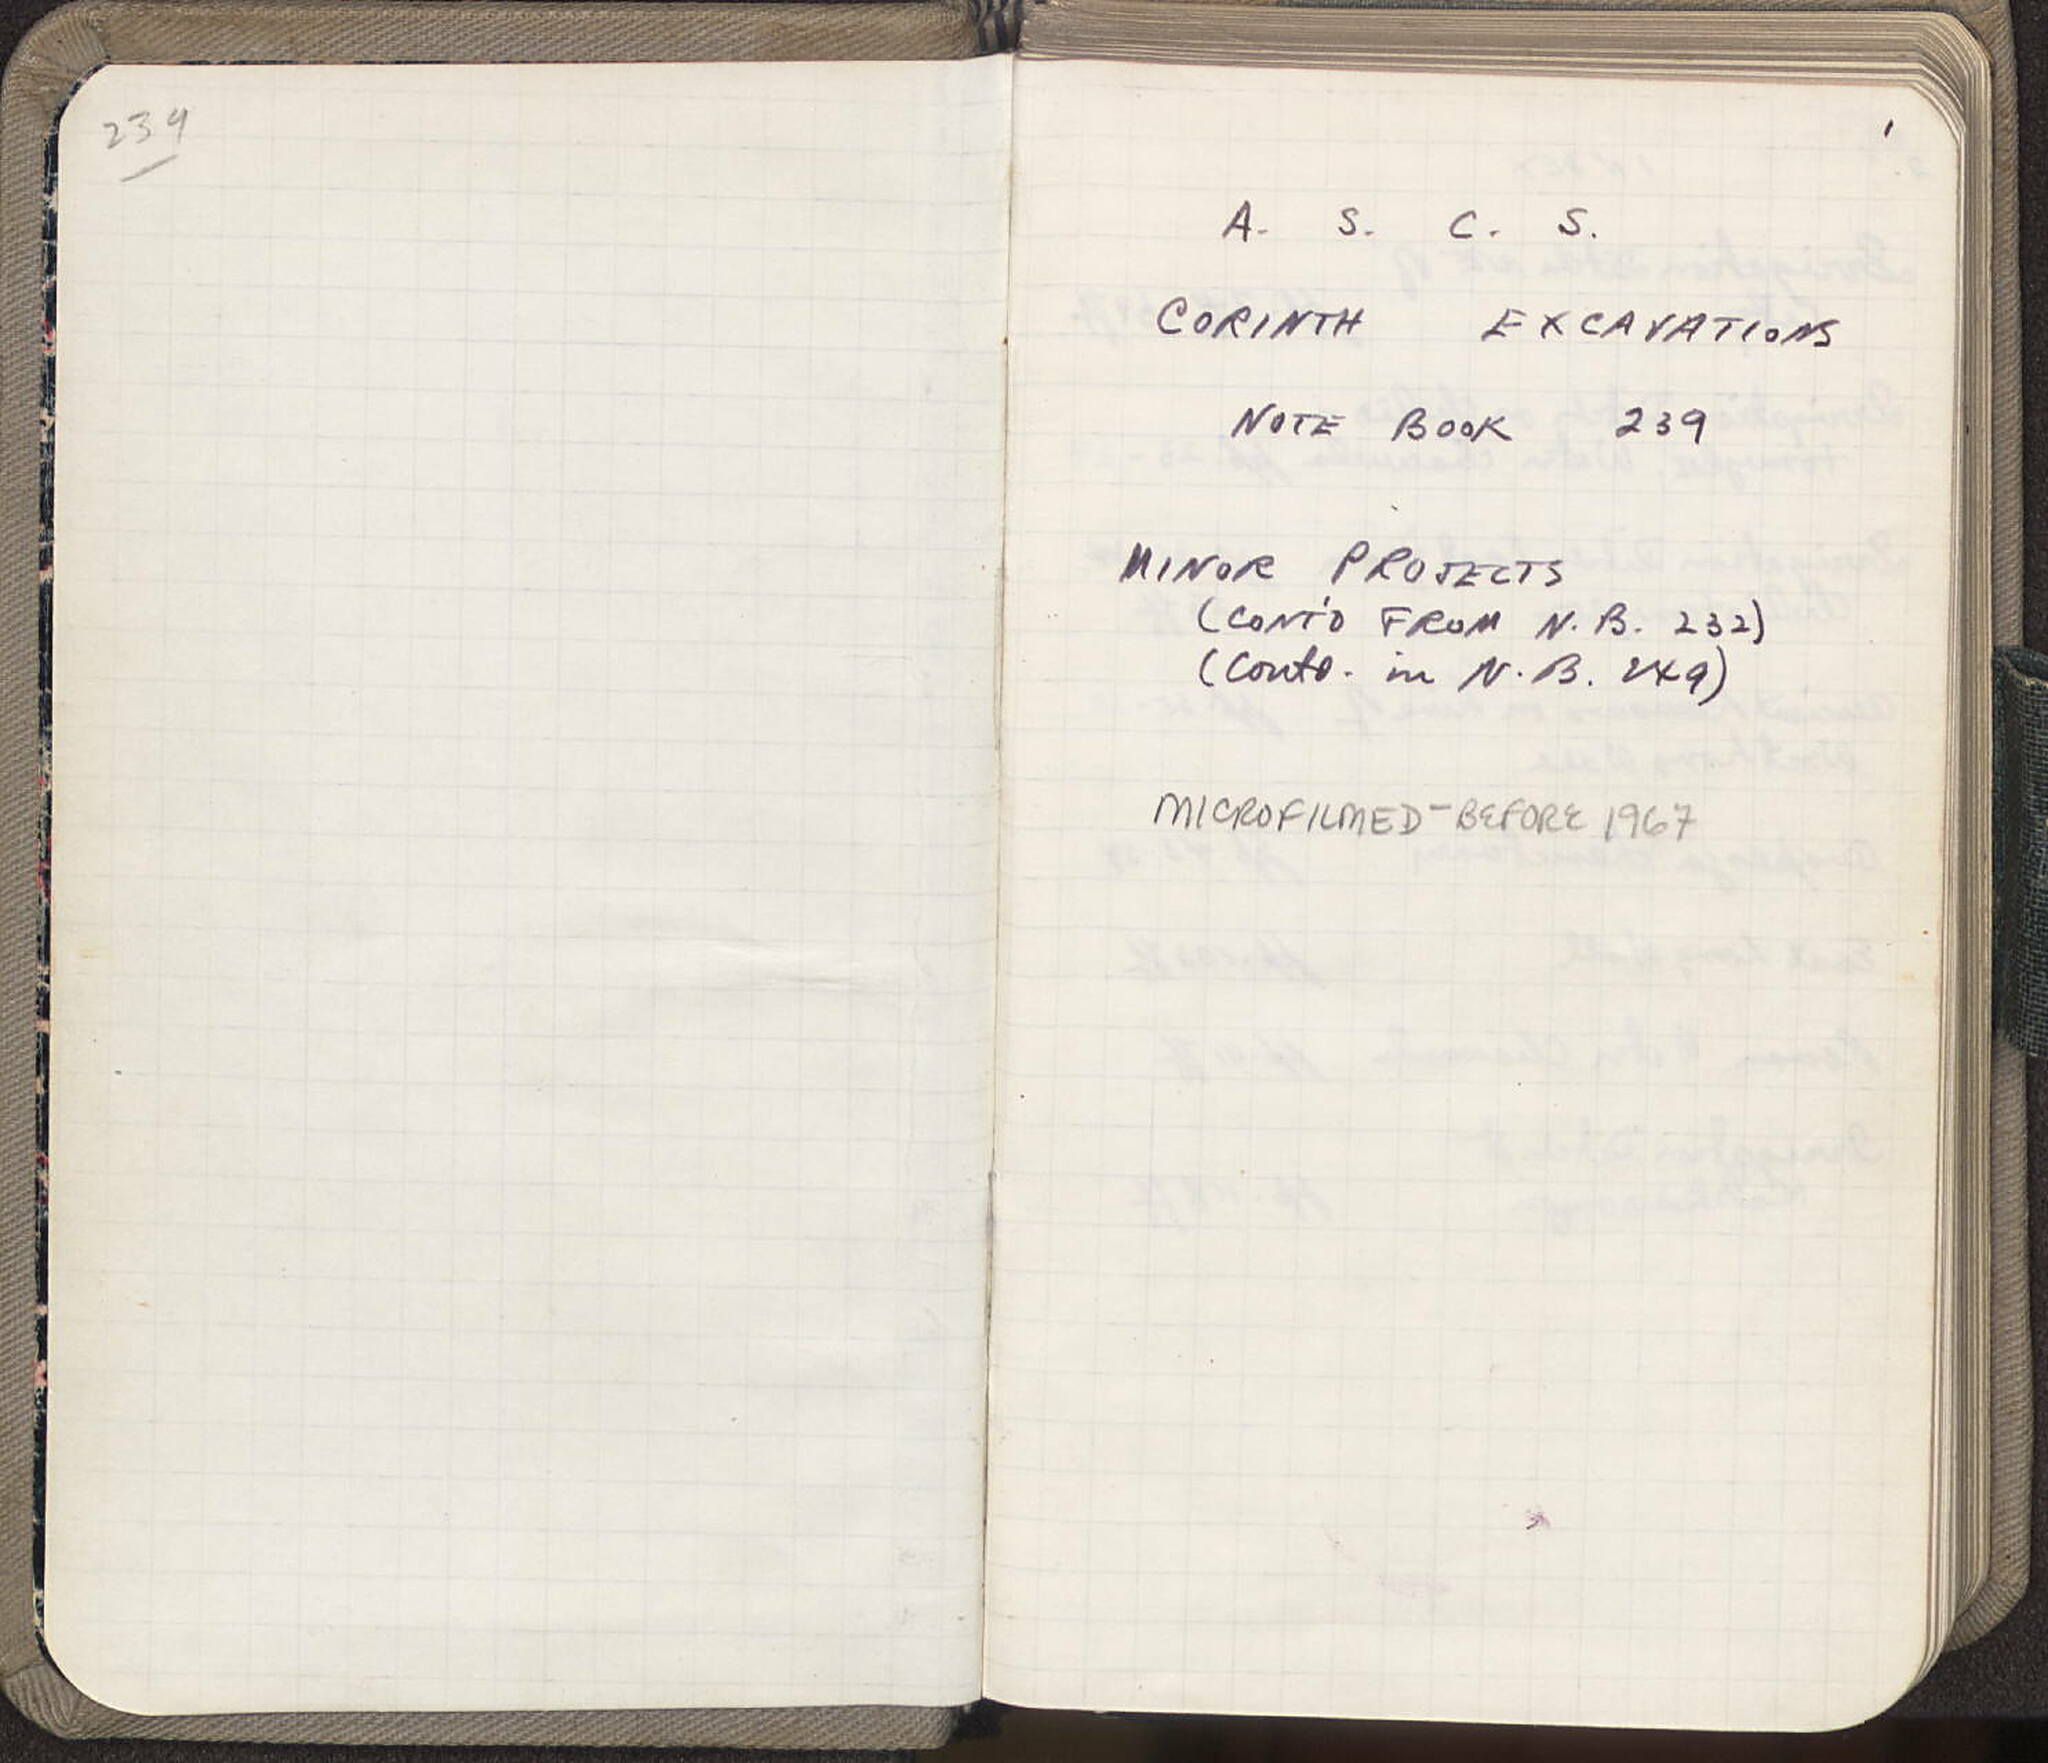 239
1
A. S. C. S.
CORINTH EXCAVATIONS
NOTE BOOK 239
MINOR PROJECTS
(CONT'D FROM N.B. 232)
(Contd. in N.B. 249)
MICROFILMED-BEFORE 1967